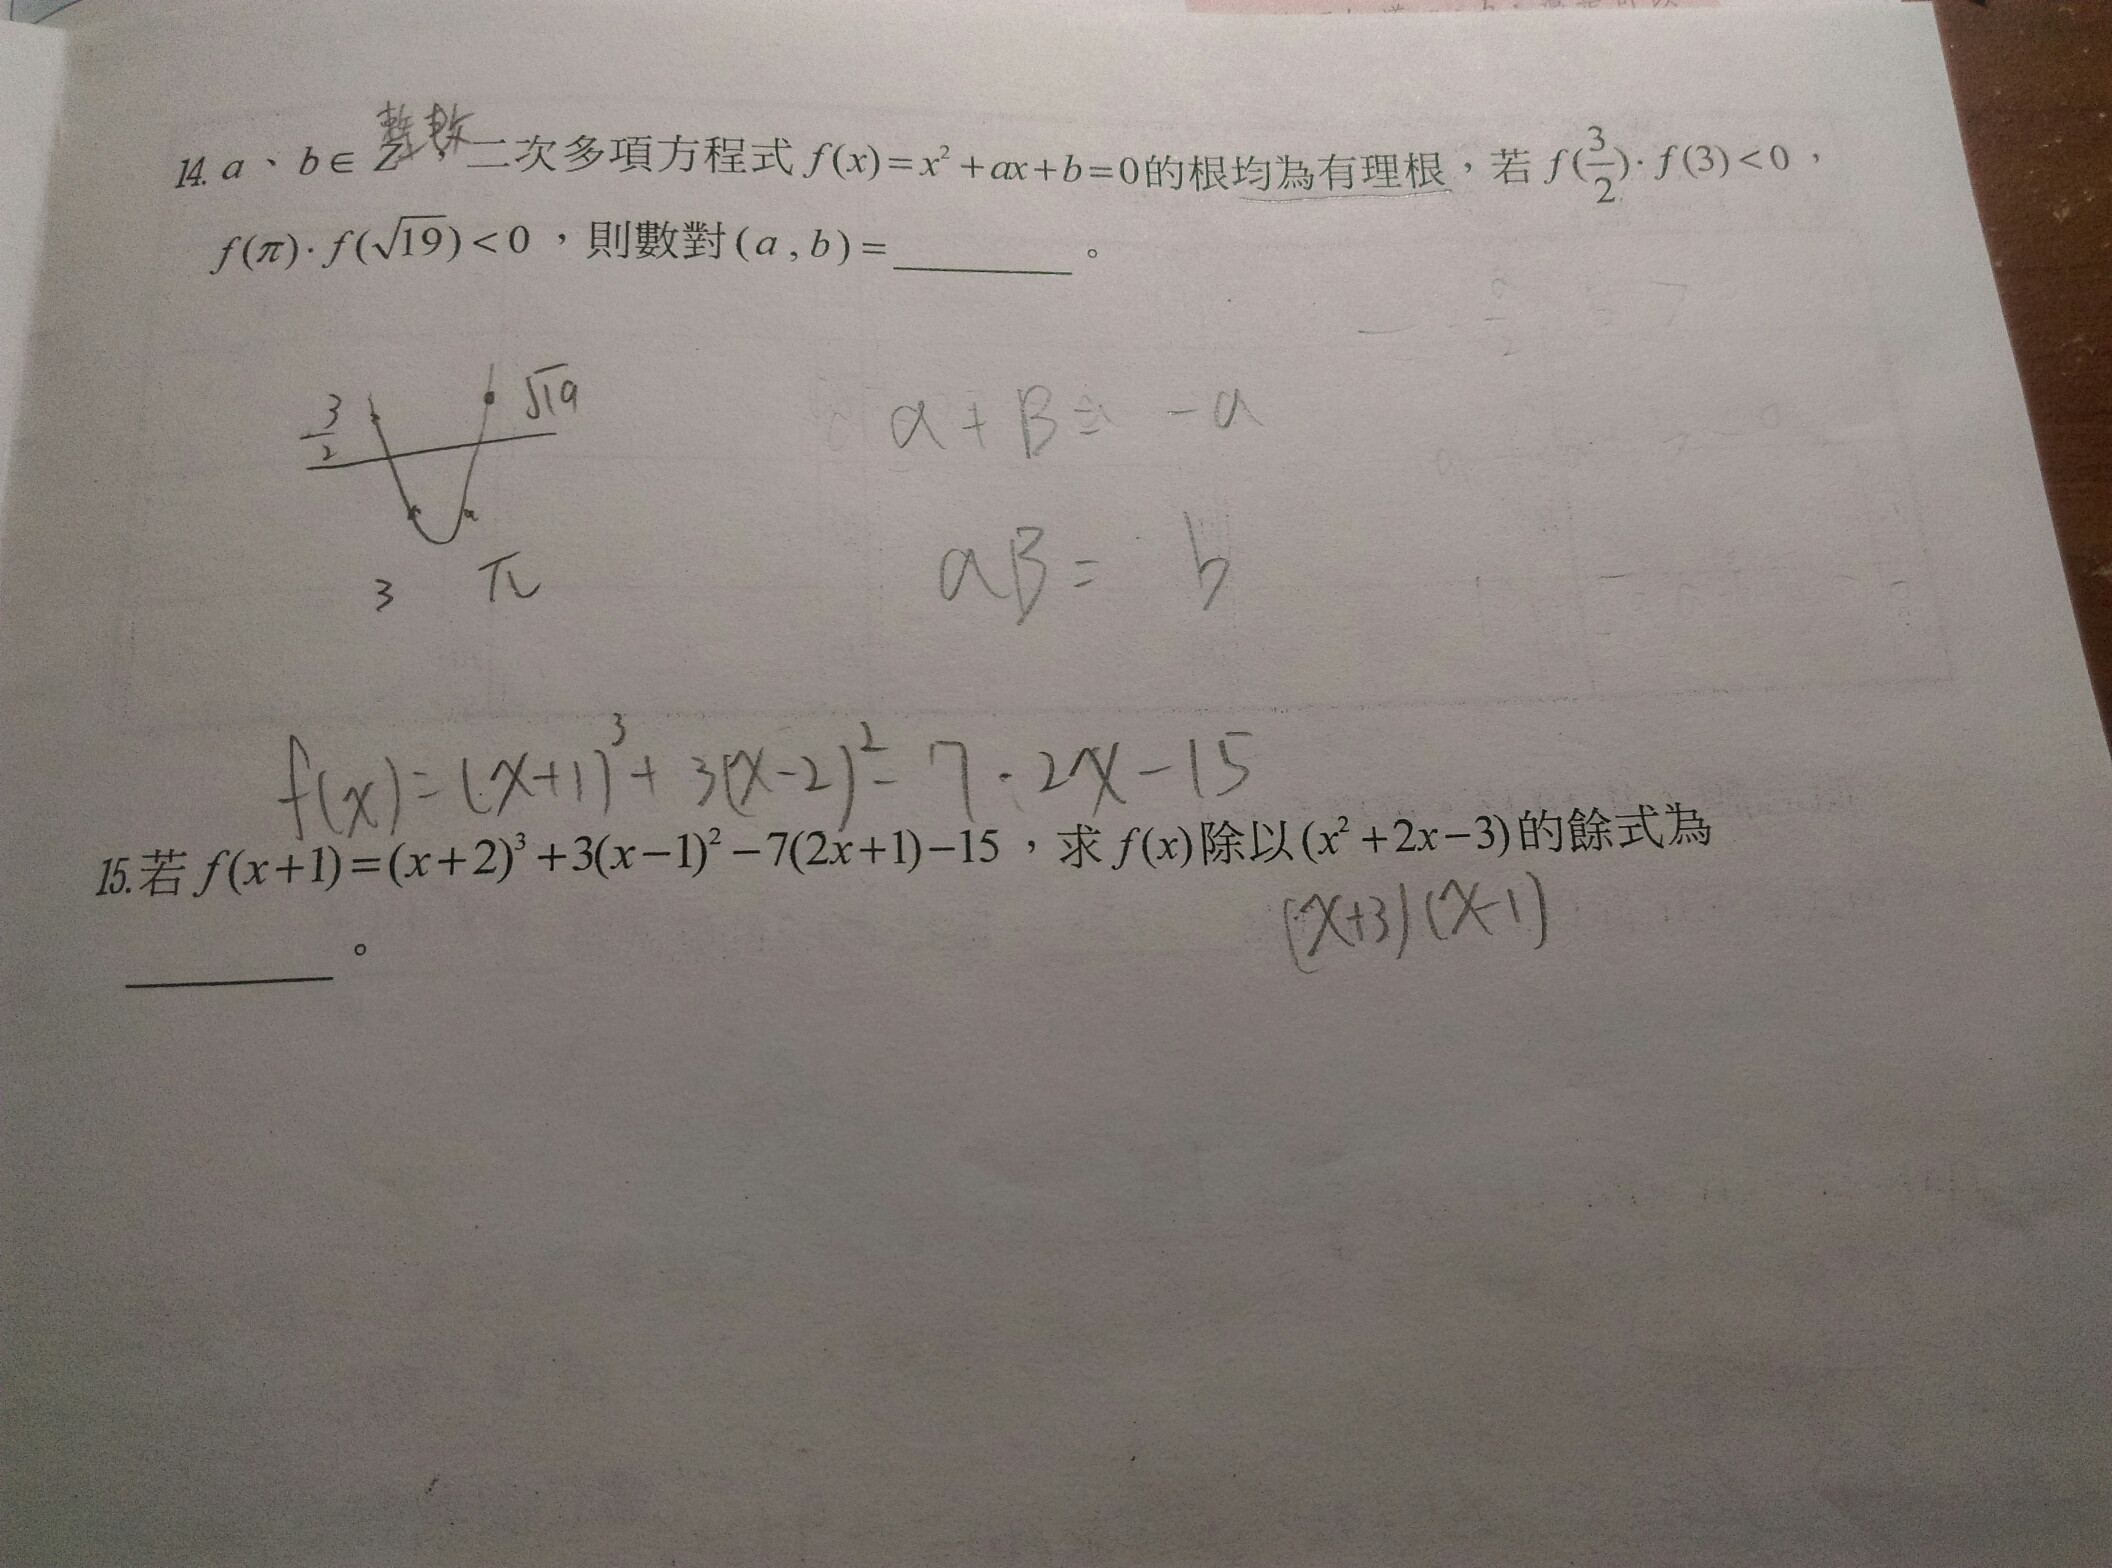 整數
14. a、b∈Z,二次多項方程式 f(x)=x²+ax+b=0的根均為有理根,若 f(3/2)·f(3)<0,
f(π)·f(√19)<0,則數對(a,b)=________。
3/2 √19
3 π
α+β=-a
αβ= b
f(x)=(x+1)³+3(x-2)²-7·2x-15
15.若 f(x+1)=(x+2)³+3(x-1)²-7(2x+1)-15,求 f(x)除以(x²+2x-3)的餘式為
(x+3)(x-1)
________。